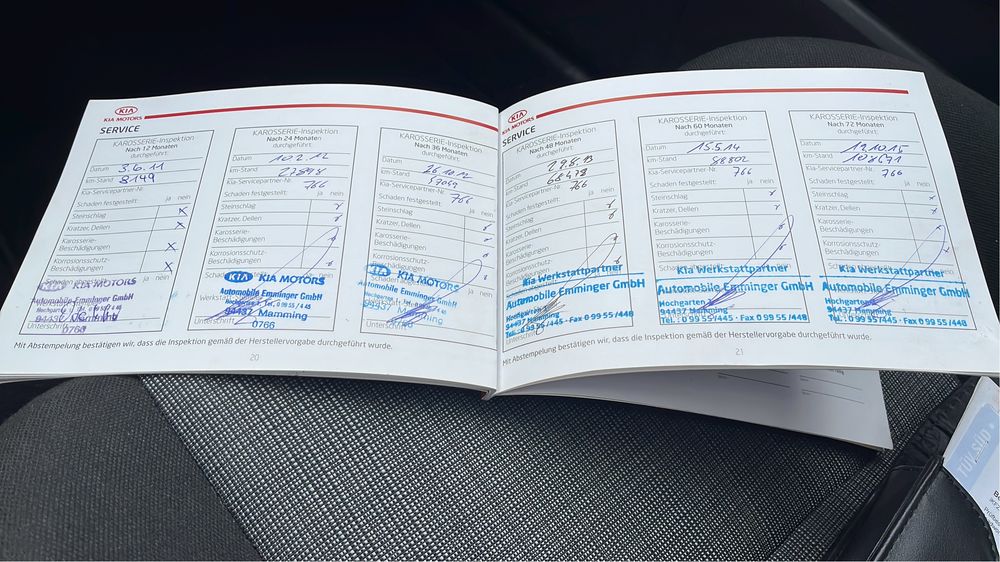 KIA
KIA MOTORS
SERVICE
KAROSSERIE-Inspektion
Nach 12 Monaten
durchgeführt:
Datum 3.6.11
km-Stand 8149
Kia-Servicepartner-Nr.
Schaden festgestellt: ja nein
Steinschlag x
Kratzer, Dellen x
Karosserie-
Beschädigungen x
Korrosionsschutz-
Beschädigungen x
KIA MOTORS
Automobile Emminger GmbH
94437 Mamming
0766
Unterschrift
KAROSSERIE-Inspektion
Nach 24 Monaten
durchgeführt:
Datum 10.2.12
km-Stand
Kia-Servicepartner-Nr. 766
Schaden festgestellt: ja nein
Steinschlag
Kratzer, Dellen
Karosserie-
Beschädigungen
Korrosionsschutz-
Beschädigungen
KIA KIA MOTORS
Automobile Emminger GmbH
94437 Mamming
0766
Unterschrift
KAROSSERIE-Inspektion
Nach 36 Monaten
durchgeführt:
Datum
km-Stand
Kia-Servicepartner-Nr. 766
Schaden festgestellt: ja nein
Steinschlag
Kratzer, Dellen
Karosserie-
Beschädigungen
Korrosionsschutz-
Beschädigungen
KIA KIA MOTORS
Automobile Emminger GmbH
94437 Mamming
Mit Abstempelung bestätigen wir, dass die Inspektion gemäß der Herstellervorgabe durchgeführt wurde.
20
KIA
KIA MOTORS
SERVICE
KAROSSERIE-Inspektion
Nach 48 Monaten
durchgeführt:
Datum 29.8.13
km-Stand 68478
Kia-Servicepartner-Nr. 766
Schaden festgestellt: ja nein
Steinschlag
Kratzer, Dellen
Karosserie-
Beschädigungen
Korrosionsschutz-
Beschädigungen
Kia Werkstattpartner
Automobile Emminger GmbH
94437 Mamming
Tel.: 0 99 55/445 · Fax 0 99 55/448
KAROSSERIE-Inspektion
Nach 60 Monaten
durchgeführt:
Datum 15.5.14
km-Stand 88802
Kia-Servicepartner-Nr. 766
Schaden festgestellt: ja nein
Steinschlag
Kratzer, Dellen
Karosserie-
Beschädigungen
Korrosionsschutz-
Beschädigungen
Kia Werkstattpartner
Automobile Emminger GmbH
94437 Mamming
Tel.: 0 99 55/445 · Fax 0 99 55/448
KAROSSERIE-Inspektion
Nach 72 Monaten
durchgeführt:
Datum
km-Stand
Kia-Servicepartner-Nr. 766
Schaden festgestellt: ja nein
Steinschlag
Kratzer, Dellen
Karosserie-
Beschädigungen
Korrosionsschutz-
Beschädigungen
Kia Werkstattpartner
Automobile Emminger GmbH
94437 Mamming
Tel.: 0 99 55/445 · Fax 0 99 55/448
Mit Abstempelung bestätigen wir, dass die Inspektion gemäß der Herstellervorgabe durchgeführt wurde.
21
TÜV SÜD